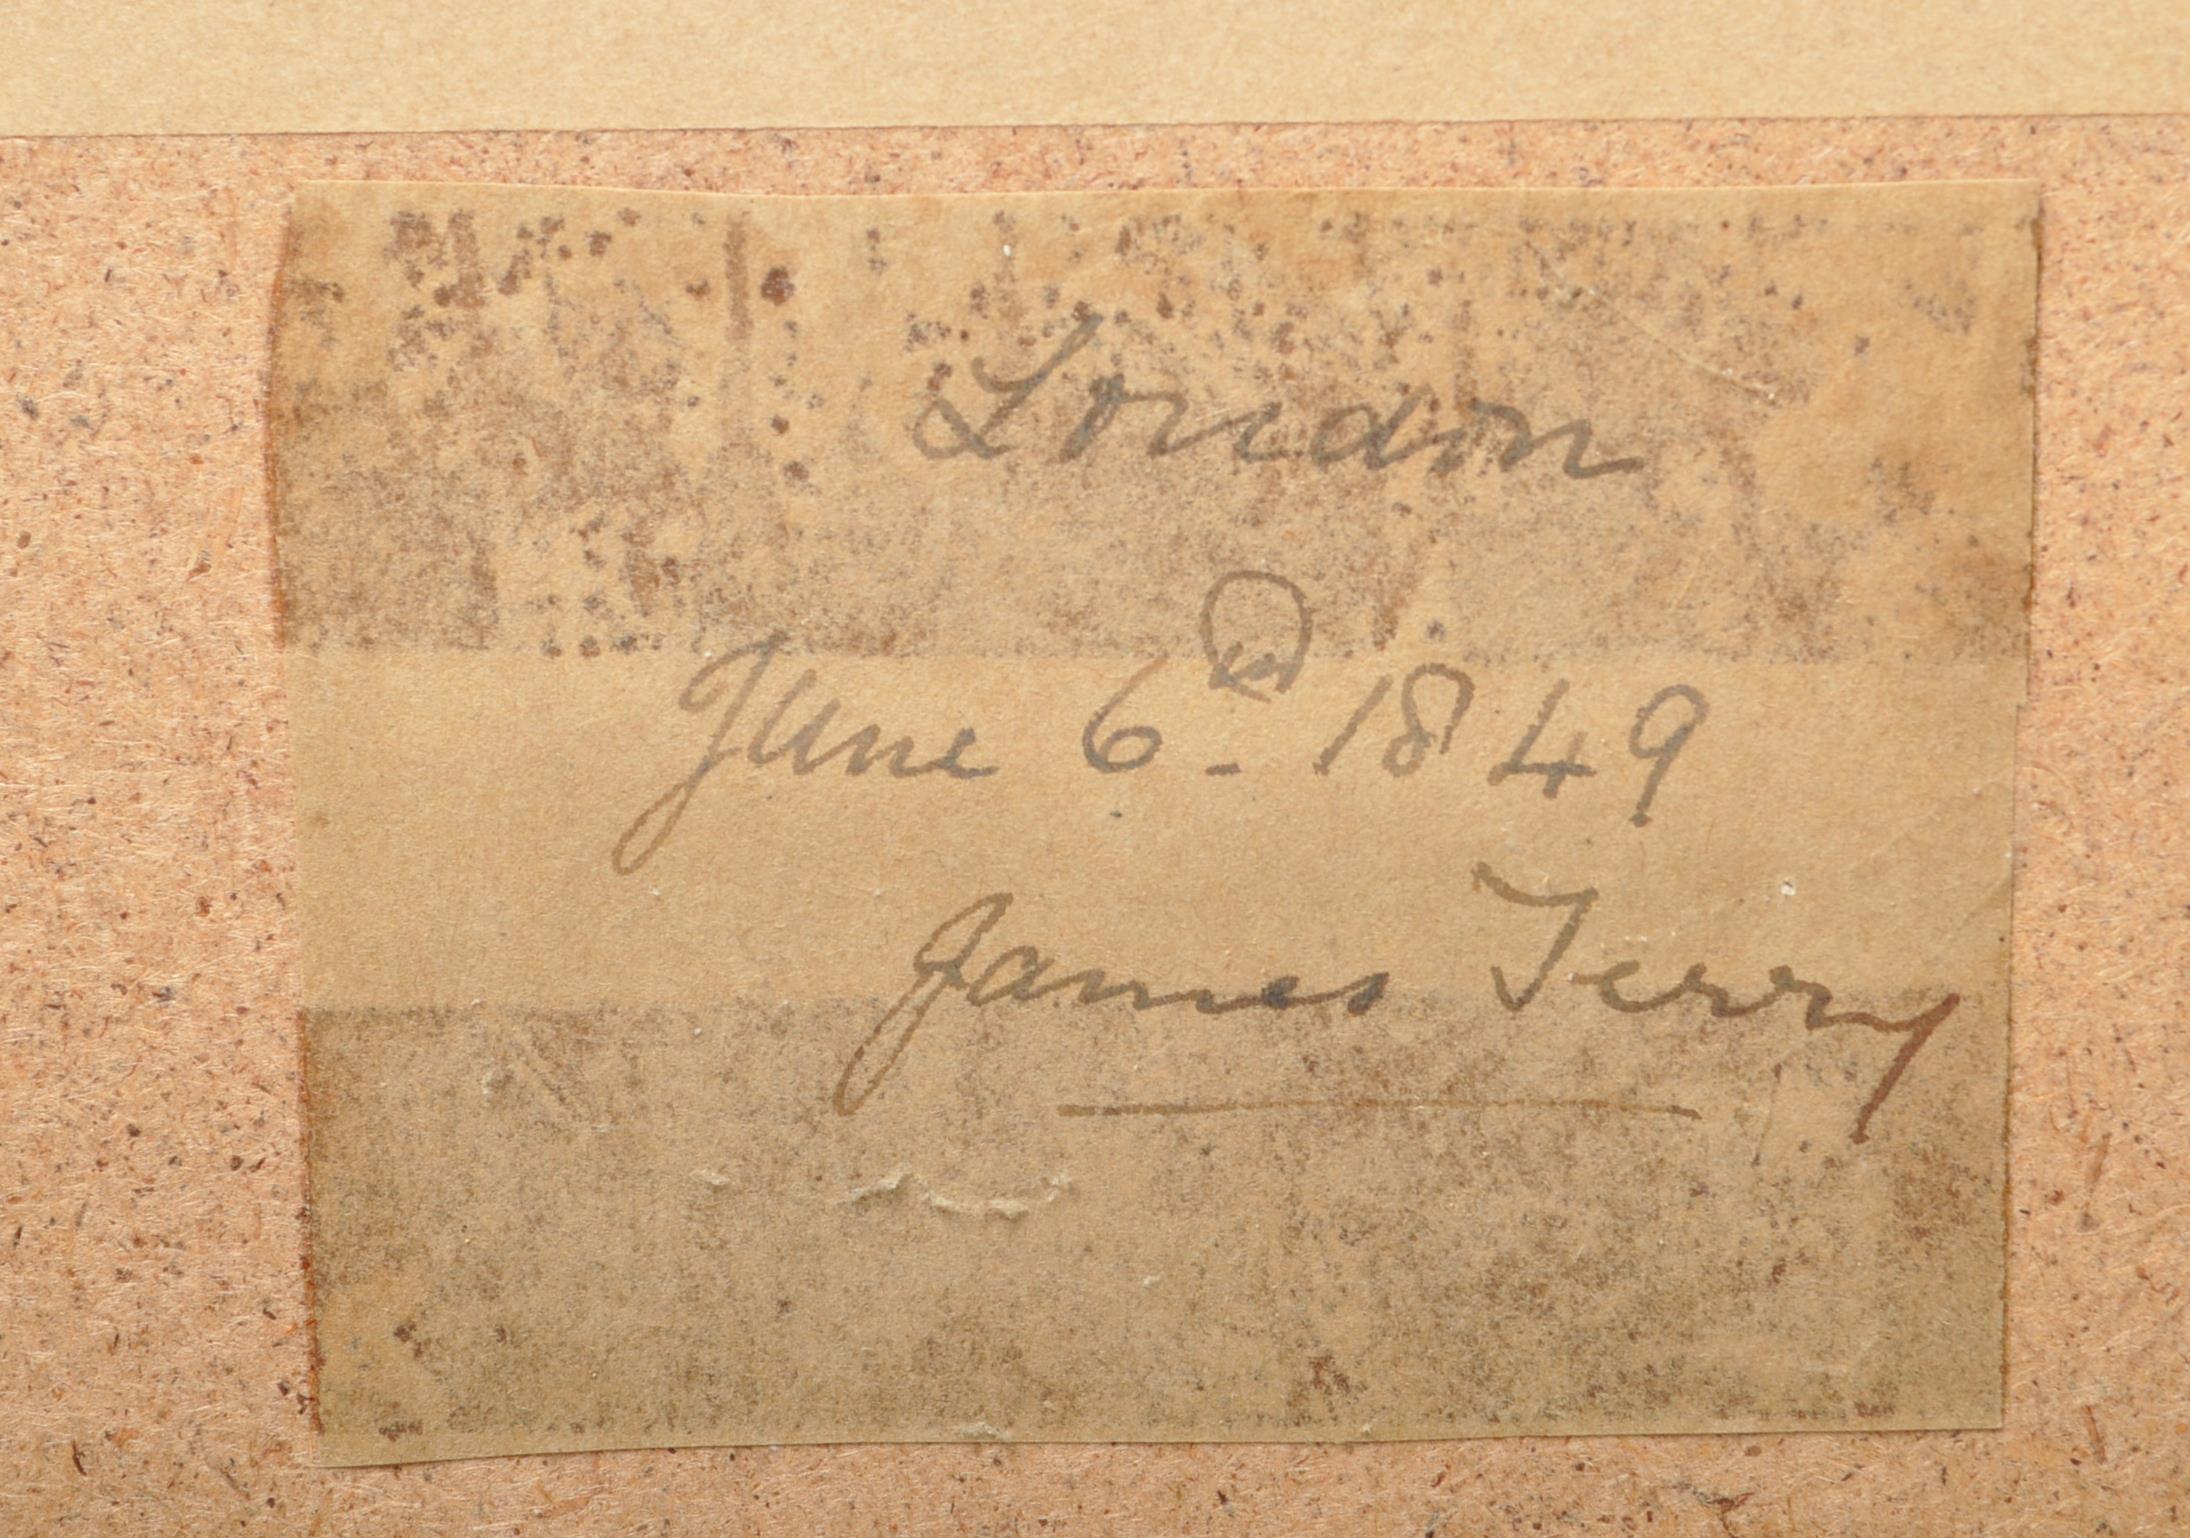 London
June 6th 1849
James Terry